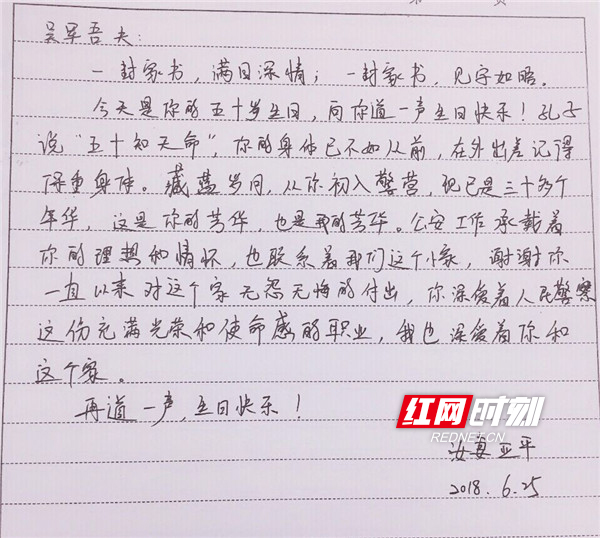 页
吴军吾夫：
一封家书，满目深情；一封家书，见字如晤。
今天是你的五十岁生日，向你道一声生日快乐！孔子
说“五十知天命”，你的身体已不如从前，在外出差记得
保重身体。藏蓝岁月，从你初入警营，现已是三十多个
年华，这是你的芳华，也是我的芳华。公安工作承载着
你的理想和情怀，也联系着我们这个小家，谢谢你
一直以来对这个家无怨无悔的付出，你深爱着人民警察
这份充满光荣和使命感的职业，我也深爱着你和
这个家。
再道一声，生日快乐！
红网时刻
REDNET.CN
亚平
2018.6.25